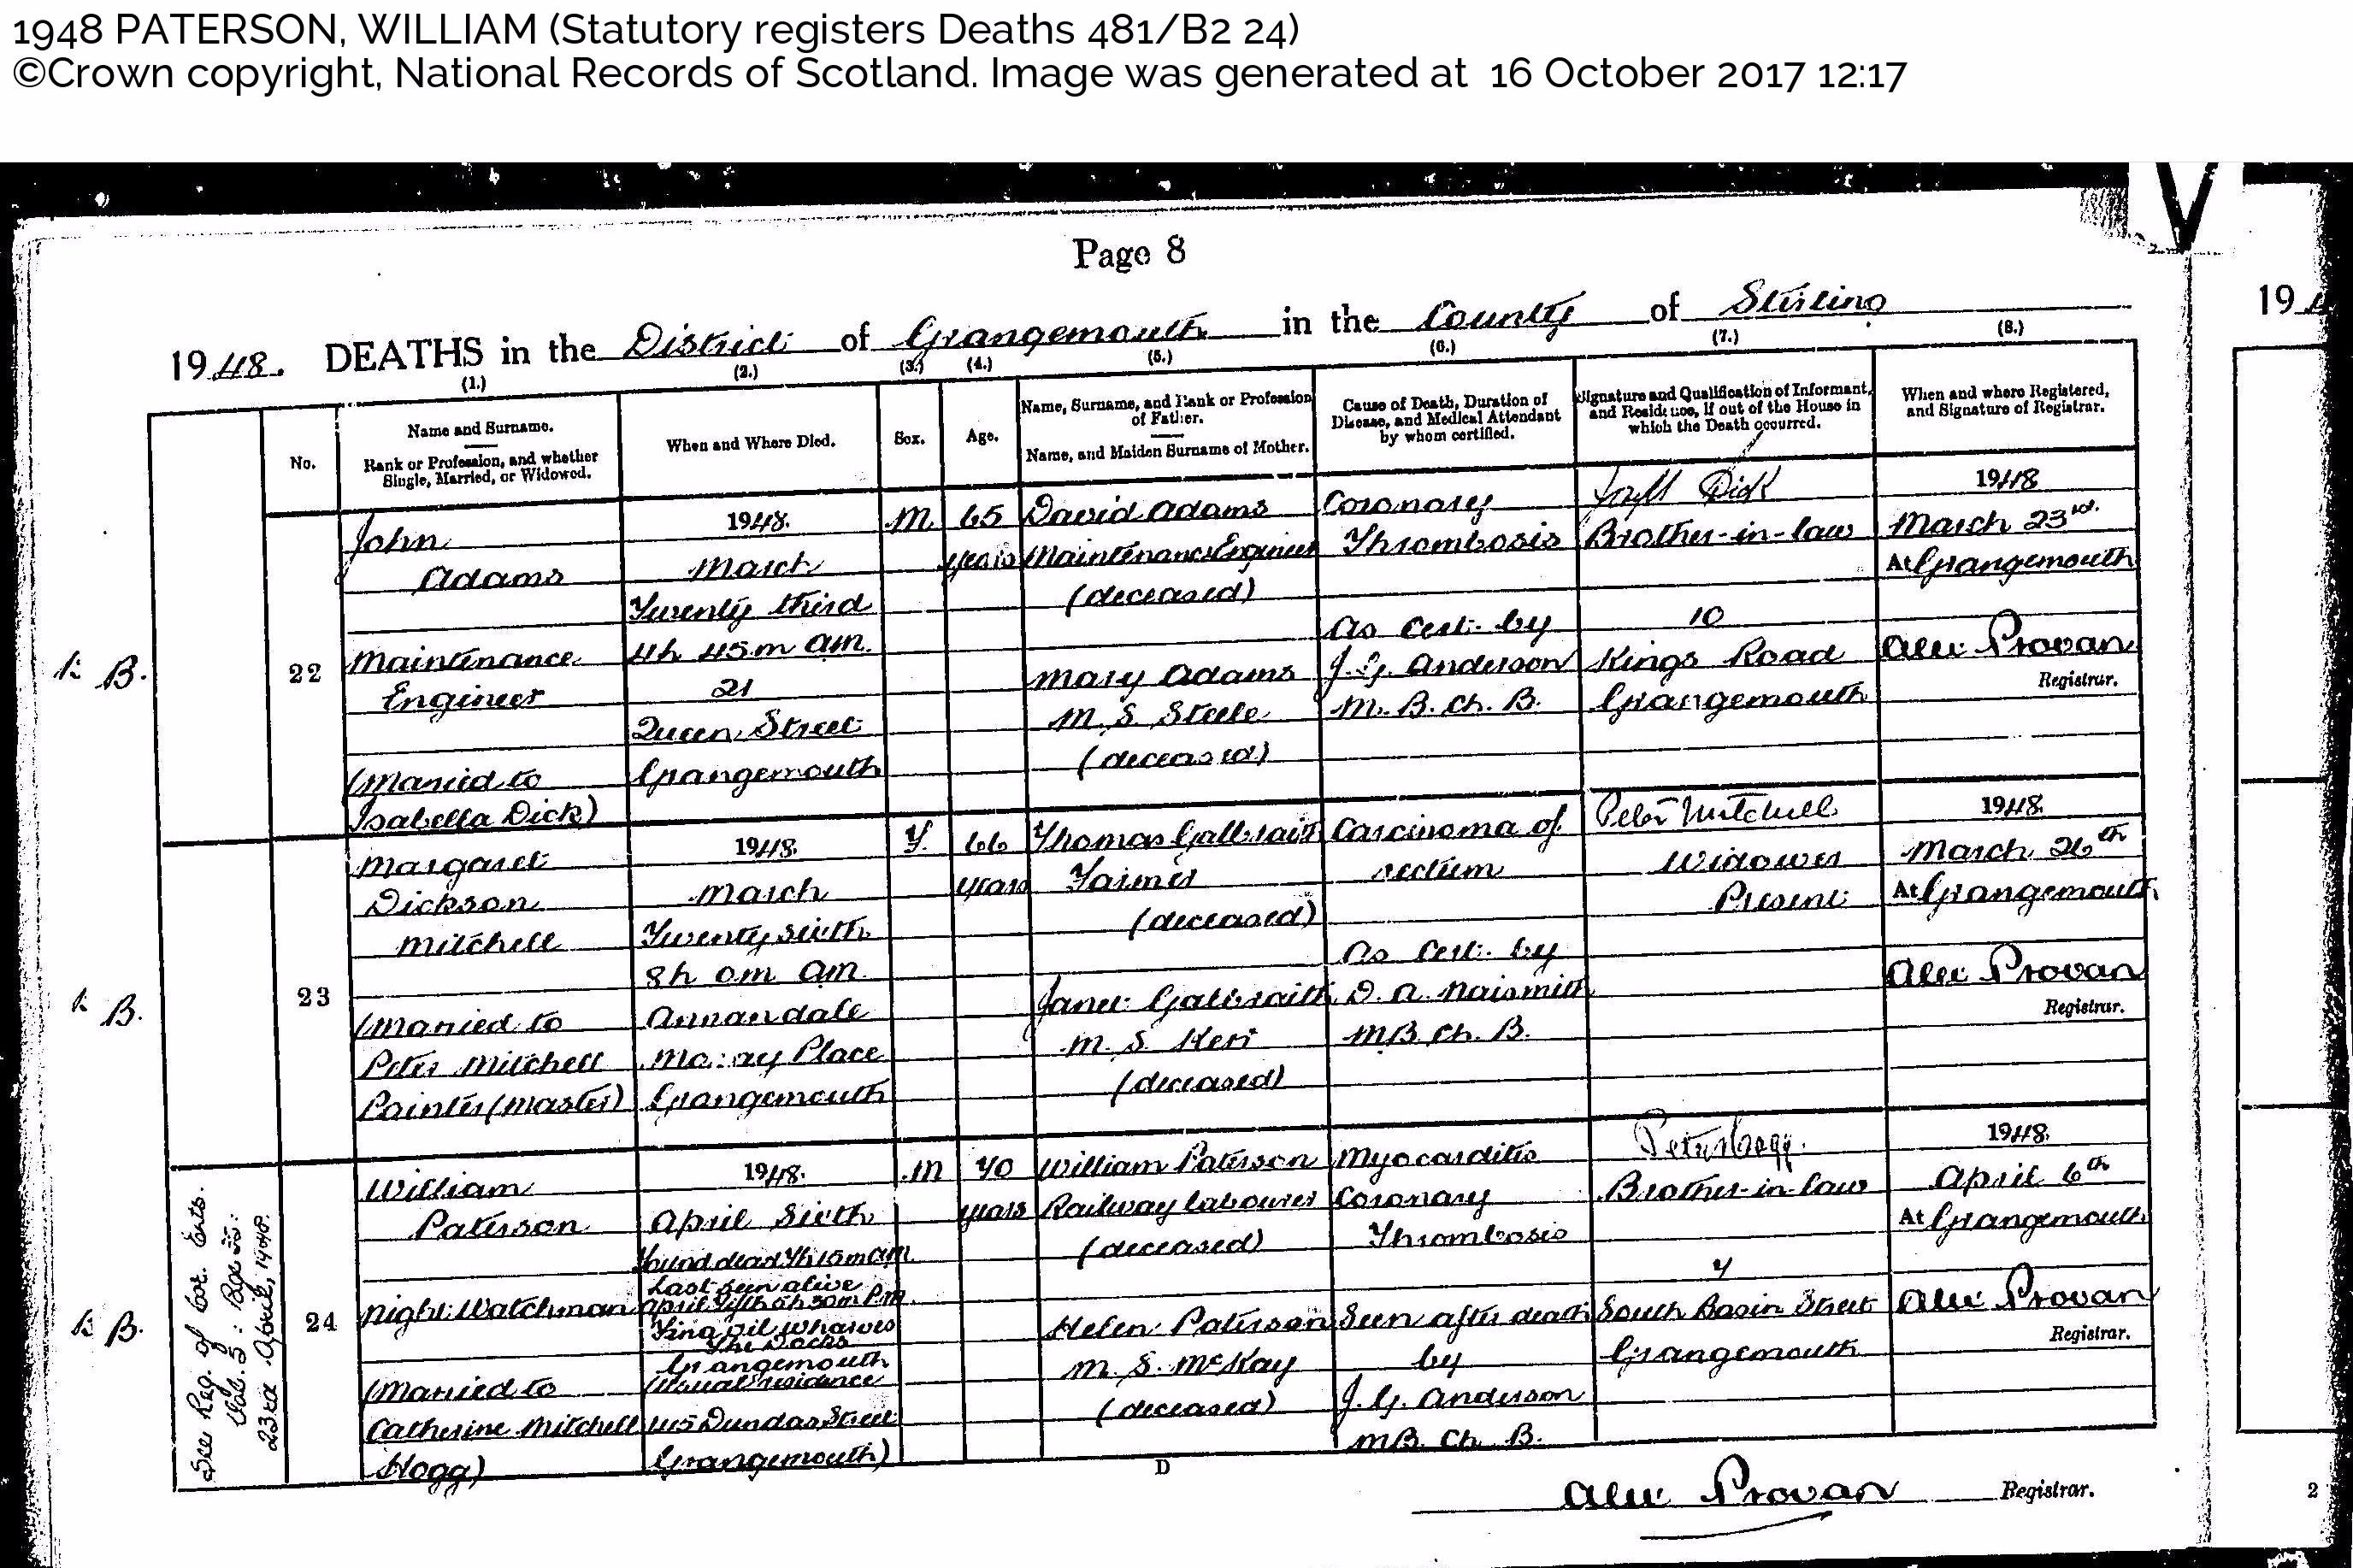 1948 PATERSON, WILLIAM (Statutory registers Deaths 481/B2 24)
©Crown copyright, National Records of Scotland. Image was generated at 16 October 2017 12:17
Page 8
1948. DEATHS in the District of Grangemouth in the County of Stirling
(1.) (2.) (3.) (4.) (5.) (6.) (7.) (8.)
No.
Name and Surname.
Rank or Profession, and whether
Single, Married, or Widowed.
When and Where Died.
Sex.
Age.
Name, Surname, and Rank or Profession
of Father.
Name, and Maiden Surname of Mother.
Cause of Death, Duration of
Disease, and Medical Attendant
by whom certified.
Signature and Qualification of Informant,
and Residence, if out of the House in
which the Death occurred.
When and where Registered,
and Signature of Registrar.
K B.
22
John
Adams
Maintenance
Engineer
(Married to
Isabella Dick)
1948.
March
Twenty third
4h 45m am.
21
Queen Street
Grangemouth
M
65
years
David Adams
Maintenance Engineer
(deceased)
Mary Adams
M. S. Steele
(deceased)
Coronary
Thrombosis
As Cert. by
J. G. Anderson
M. B. Ch. B.
Dick
Brother-in-law
10
Kings Road
Grangemouth
1948
March 23rd.
At Grangemouth
Alex Provan
Registrar.
K B.
23
Margaret
Dickson
Mitchell
(Married to
Peter Mitchell
Painter (Master)
1948.
March
Twenty sixth
8h 0m am.
Annandale
Moray Place
Grangemouth
F.
66
years
Thomas Galbraith
Farmer
(deceased)
Janet Galbraith
M. S. Kerr
(deceased)
Carcinoma of
rectum
As Cert. by
D. A. Naismith
MB. Ch. B.
Peter Mitchell
Widower
Present
1948.
March 26th
At Grangemouth
Alex Provan
Registrar.
K B.
See Reg. of Cor. Ents.
Vol. 5:
23rd April, 1948.
24
William
Paterson
Night Watchman
(Married to
Catherine Mitchell
Hogg)
1948.
April Sixth
Found dead 7h 15m am.
Last seen alive
April Fifth 5h 30m P.m.
The Docks
Grangemouth
(Usual residence
45 Dundas Street
Grangemouth)
M
70
years
William Paterson
Railway Labourer
(deceased)
Helen Paterson
M. S. McKay
(deceased)
Myocarditis
Coronary
Thrombosis
Seen after death
by
J. G. Anderson
MB. Ch. B.
Peter Hogg.
Brother-in-law
South Basin Street
Grangemouth
1948.
April 6th
At Grangemouth
Alex Provan
Registrar.
D
Alex Provan Registrar.
19
2